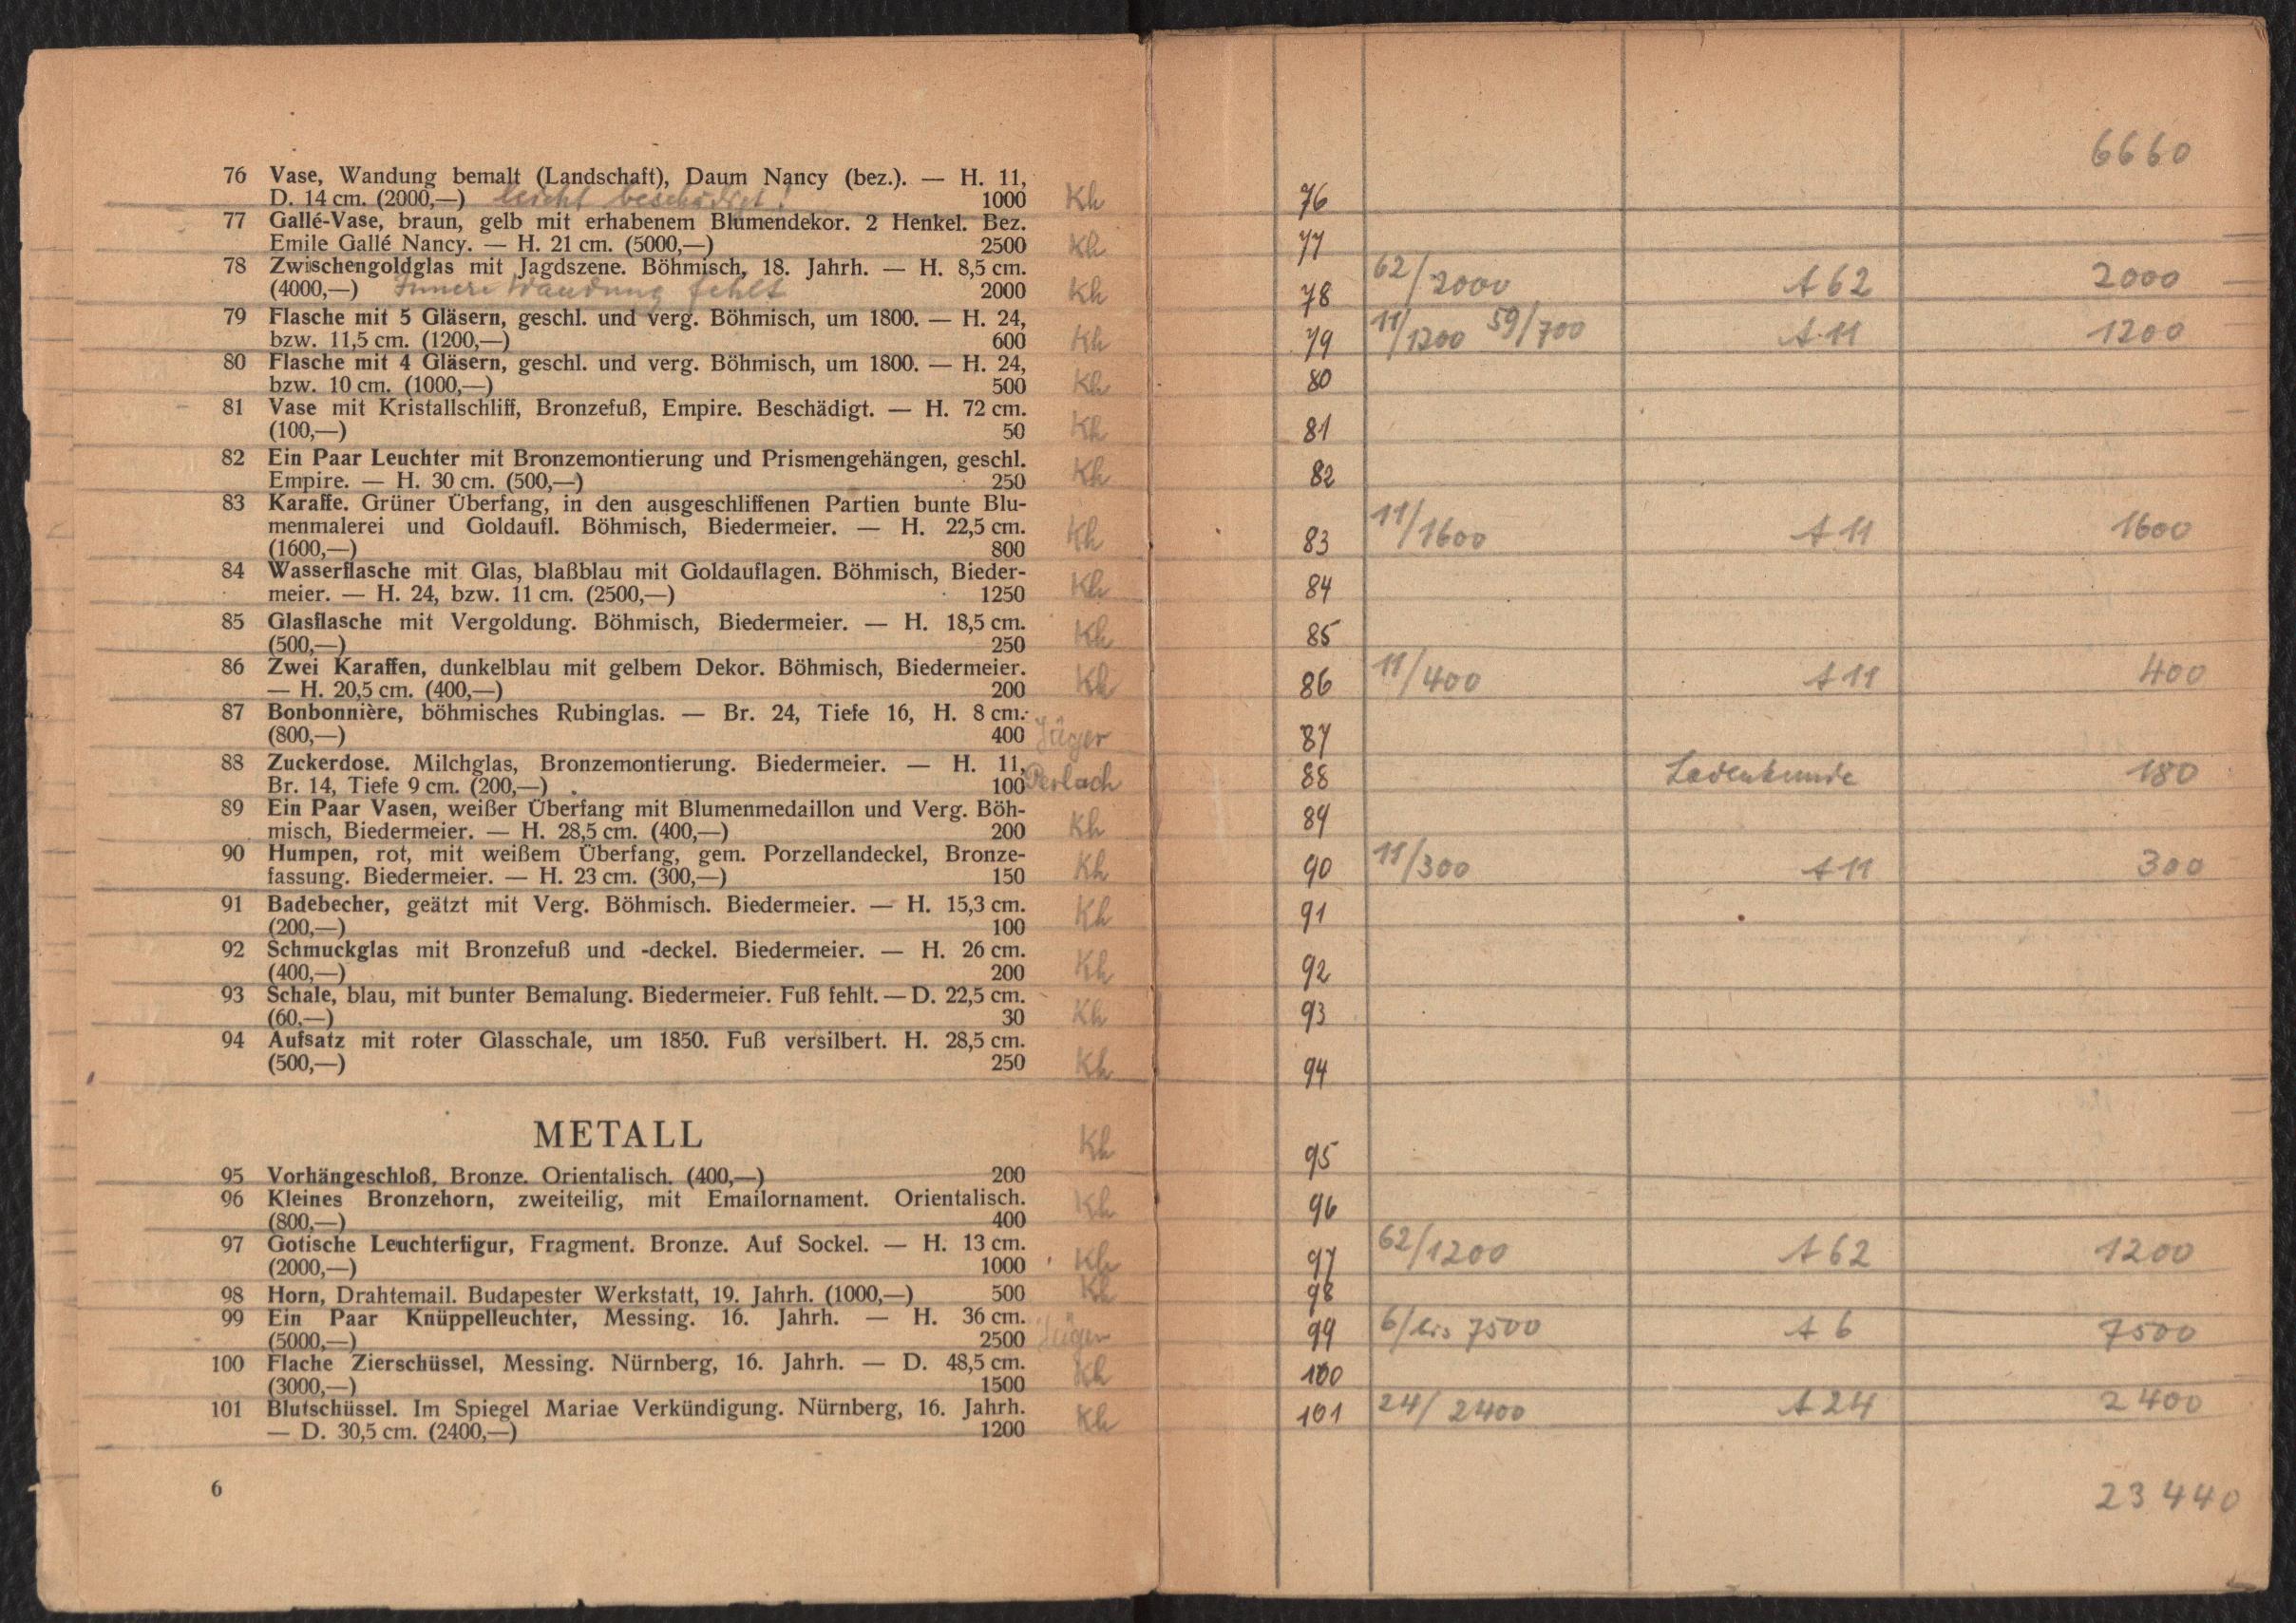 76 Vase, Wandung bemalt (Landschaft), Daum Nancy (bez.). — H. 11,
D. 14 cm. (2000,—) leicht beschädigt! 1000 Kh
77 Gallé-Vase, braun, gelb mit erhabenem Blumendekor. 2 Henkel. Bez.
Emile Gallé Nancy. — H. 21 cm. (5000,—) 2500 Kh
78 Zwischengoldglas mit Jagdszene. Böhmisch, 18. Jahrh. — H. 8,5 cm.
(4000,—) Innere Wandung fehlt 2000 Kh
79 Flasche mit 5 Gläsern, geschl. und verg. Böhmisch, um 1800. — H. 24,
bzw. 11,5 cm. (1200,—) 600 Kh
80 Flasche mit 4 Gläsern, geschl. und verg. Böhmisch, um 1800. — H. 24,
bzw. 10 cm. (1000,—) 500 Kh
81 Vase mit Kristallschliff, Bronzefuß, Empire. Beschädigt. — H. 72 cm.
(100,—) 50 Kh
82 Ein Paar Leuchter mit Bronzemontierung und Prismengehängen, geschl.
Empire. — H. 30 cm. (500,—) 250 Kh
83 Karaffe. Grüner Überfang, in den ausgeschliffenen Partien bunte Blu-
menmalerei und Goldaufl. Böhmisch, Biedermeier. — H. 22,5 cm.
(1600,—) 800 Kh
84 Wasserflasche mit Glas, blaßblau mit Goldauflagen. Böhmisch, Bieder-
meier. — H. 24, bzw. 11 cm. (2500,—) 1250 Kh
85 Glasflasche mit Vergoldung. Böhmisch, Biedermeier. — H. 18,5 cm.
(500,—) 250 Kh
86 Zwei Karaffen, dunkelblau mit gelbem Dekor. Böhmisch, Biedermeier.
— H. 20,5 cm. (400,—) 200 Kh
87 Bonbonnière, böhmisches Rubinglas. — Br. 24, Tiefe 16, H. 8 cm.
(800,—) 400 Jäger
88 Zuckerdose. Milchglas, Bronzemontierung. Biedermeier. — H. 11,
Br. 14, Tiefe 9 cm. (200,—) 100 Perlach
89 Ein Paar Vasen, weißer Überfang mit Blumenmedaillon und Verg. Böh-
misch, Biedermeier. — H. 28,5 cm. (400,—) 200 Kh
90 Humpen, rot, mit weißem Überfang, gem. Porzellandeckel, Bronze-
fassung. Biedermeier. — H. 23 cm. (300,—) 150 Kh
91 Badebecher, geätzt mit Verg. Böhmisch. Biedermeier. — H. 15,3 cm.
(200,—) 100 Kh
92 Schmuckglas mit Bronzefuß und -deckel. Biedermeier. — H. 26 cm.
(400,—) 200 Kh
93 Schale, blau, mit bunter Bemalung. Biedermeier. Fuß fehlt. — D. 22,5 cm.
(60,—) 30 Kh
94 Aufsatz mit roter Glasschale, um 1850. Fuß versilbert. H. 28,5 cm.
(500,—) 250 Kh
METALL
95 Vorhängeschloß, Bronze. Orientalisch. (400,—) 200 Kh
96 Kleines Bronzehorn, zweiteilig, mit Emailornament. Orientalisch.
(800,—) 400 Kh
97 Gotische Leuchterfigur, Fragment. Bronze. Auf Sockel. — H. 13 cm.
(2000,—) 1000 Kh
98 Horn, Drahtemail. Budapester Werkstatt, 19. Jahrh. (1000,—) 500 Kh
99 Ein Paar Knüppelleuchter, Messing. 16. Jahrh. — H. 36 cm.
(5000,—) 2500 Jäger
100 Flache Zierschüssel, Messing. Nürnberg, 16. Jahrh. — D. 48,5 cm.
(3000,—) 1500 Kh
101 Blutschüssel. Im Spiegel Mariae Verkündigung. Nürnberg, 16. Jahrh.
— D. 30,5 cm. (2400,—) 1200 Kh
6
6660
76
77
78 62/2000 A 62 2000
79 11/1200 59/700 A 11 1200
80
81
82
83 11/1600 A 11 1600
84
85
86 11/400 A 11 400
87
88 Ladenkunde 180
89
90 11/300 A 11 300
91
92
93
94
95
96
97 62/1200 A 62 1200
98
99 6/bis 7500 A 6 7500
100
101 24/2400 A 24 2400
23 440